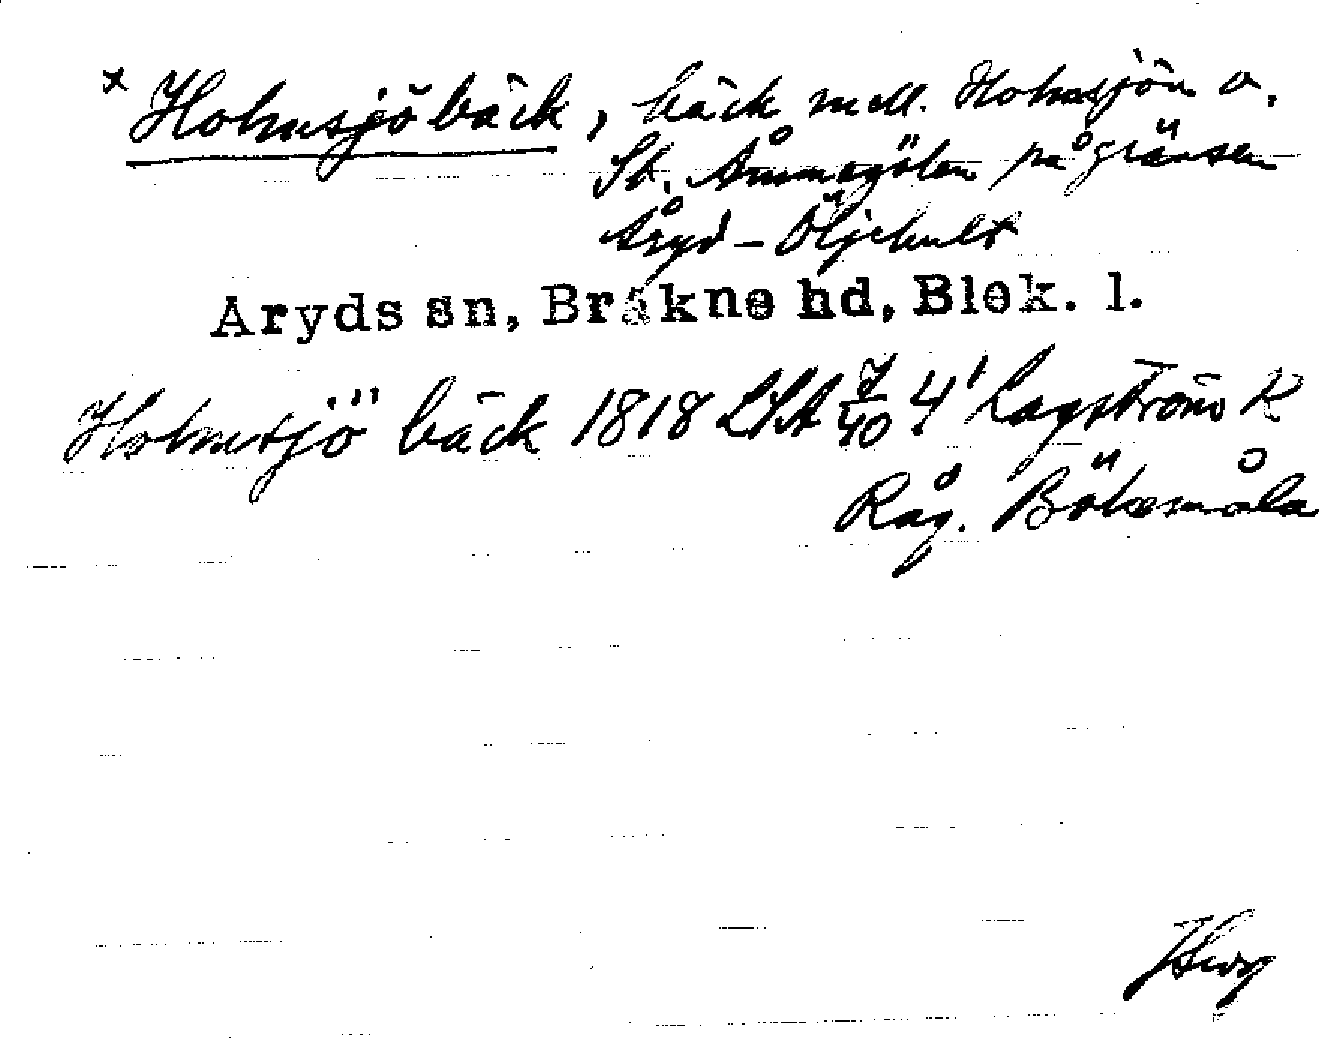 x Holmsjöbäck, bäck mell. Holmsjön o.
St. Ämmegölen på gränsen
Åryd - Öljehult
Åryds sn, Bräkne hd, Blek. l.
Holmsjö bäck 1818 LSA 7/40 4' Lagström K
Råg. Bökemåla